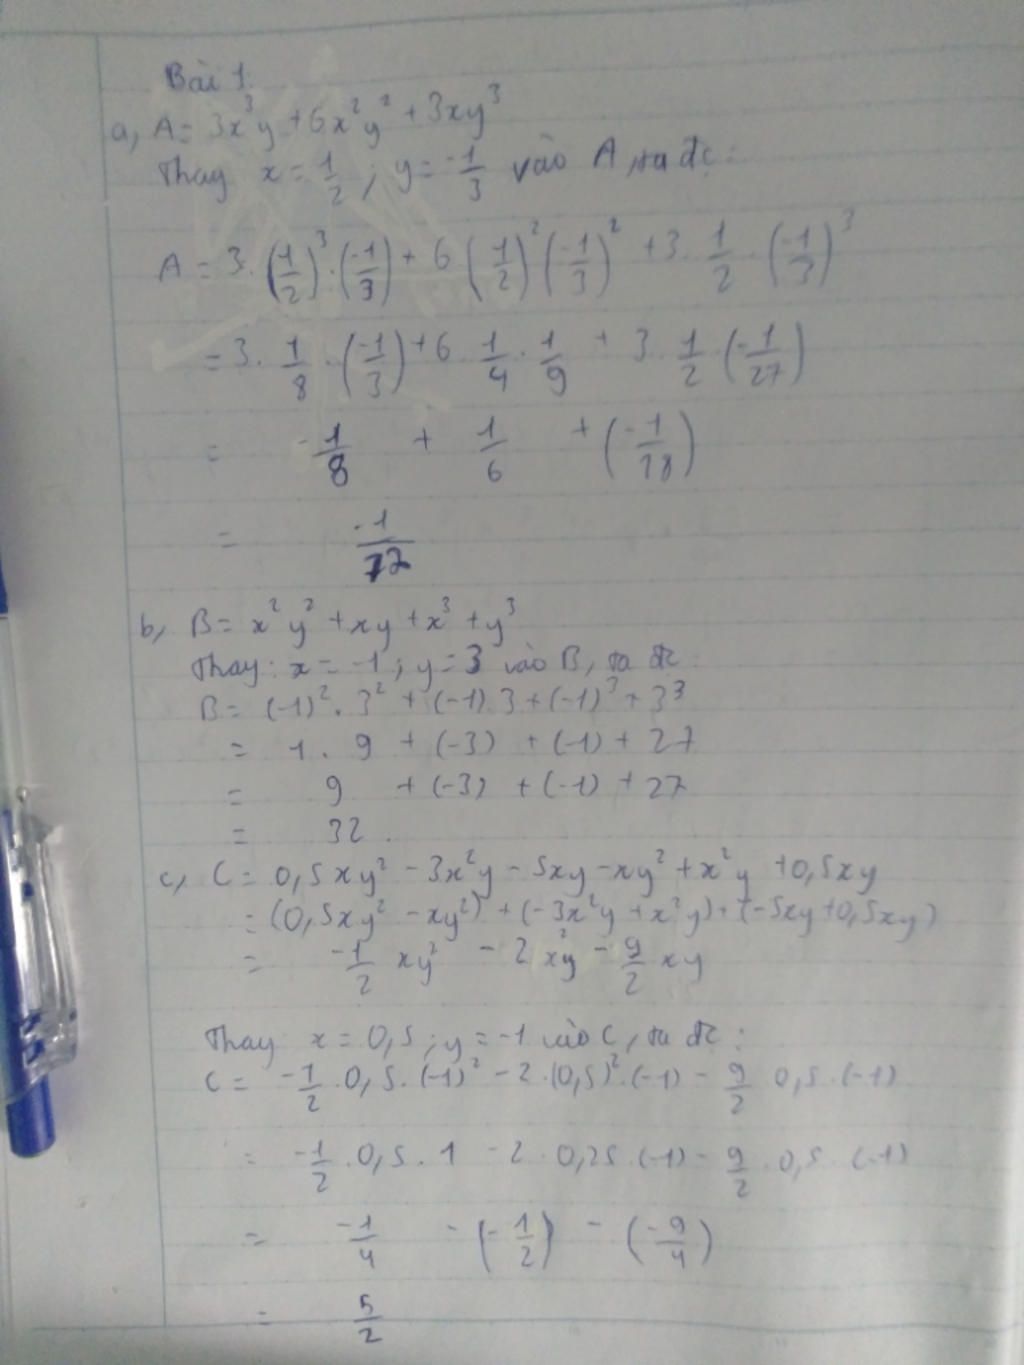 Bài 1.
a, A = 3x³y + 6x²y² + 3xy³
Thay x = 1/2 ; y = -1/3 vào A, ta đc :
A = 3. (1/2)³ . (-1/3) + 6 (1/2)² (-1/3)² + 3. 1/2 . (-1/3)³
= 3. 1/8 . (-1/3) + 6 1/4 . 1/9 + 3. 1/2 . (-1/27)
= -1/8 + 1/6 + (-1/18)
= -1/72
b, B = x²y² + xy + x³ + y³
Thay : x = -1 ; y = 3 vào B, ta đc :
B = (-1)² . 3² + (-1) 3 + (-1)³ + 3³
= 1 . 9 + (-3) + (-1) + 27
= 9 + (-3) + (-1) + 27
= 32 .
c, C = 0,5xy² - 3x²y - 5xy - xy² + x²y + 0,5xy
= (0,5xy² - xy²) + (-3x²y + x²y) + (-5xy + 0,5xy)
= -1/2 xy² - 2 x²y - 9/2 xy
Thay x = 0,5 ; y = -1 vào C, ta đc :
C = -1/2 . 0,5 . (-1)² - 2 . (0,5)² . (-1) - 9/2 0,5 . (-1)
= -1/2 . 0,5 . 1 - 2 . 0,25 . (-1) - 9/2 . 0,5 . (-1)
= -1/4 - (-1/2) - (-9/4)
= 5/2